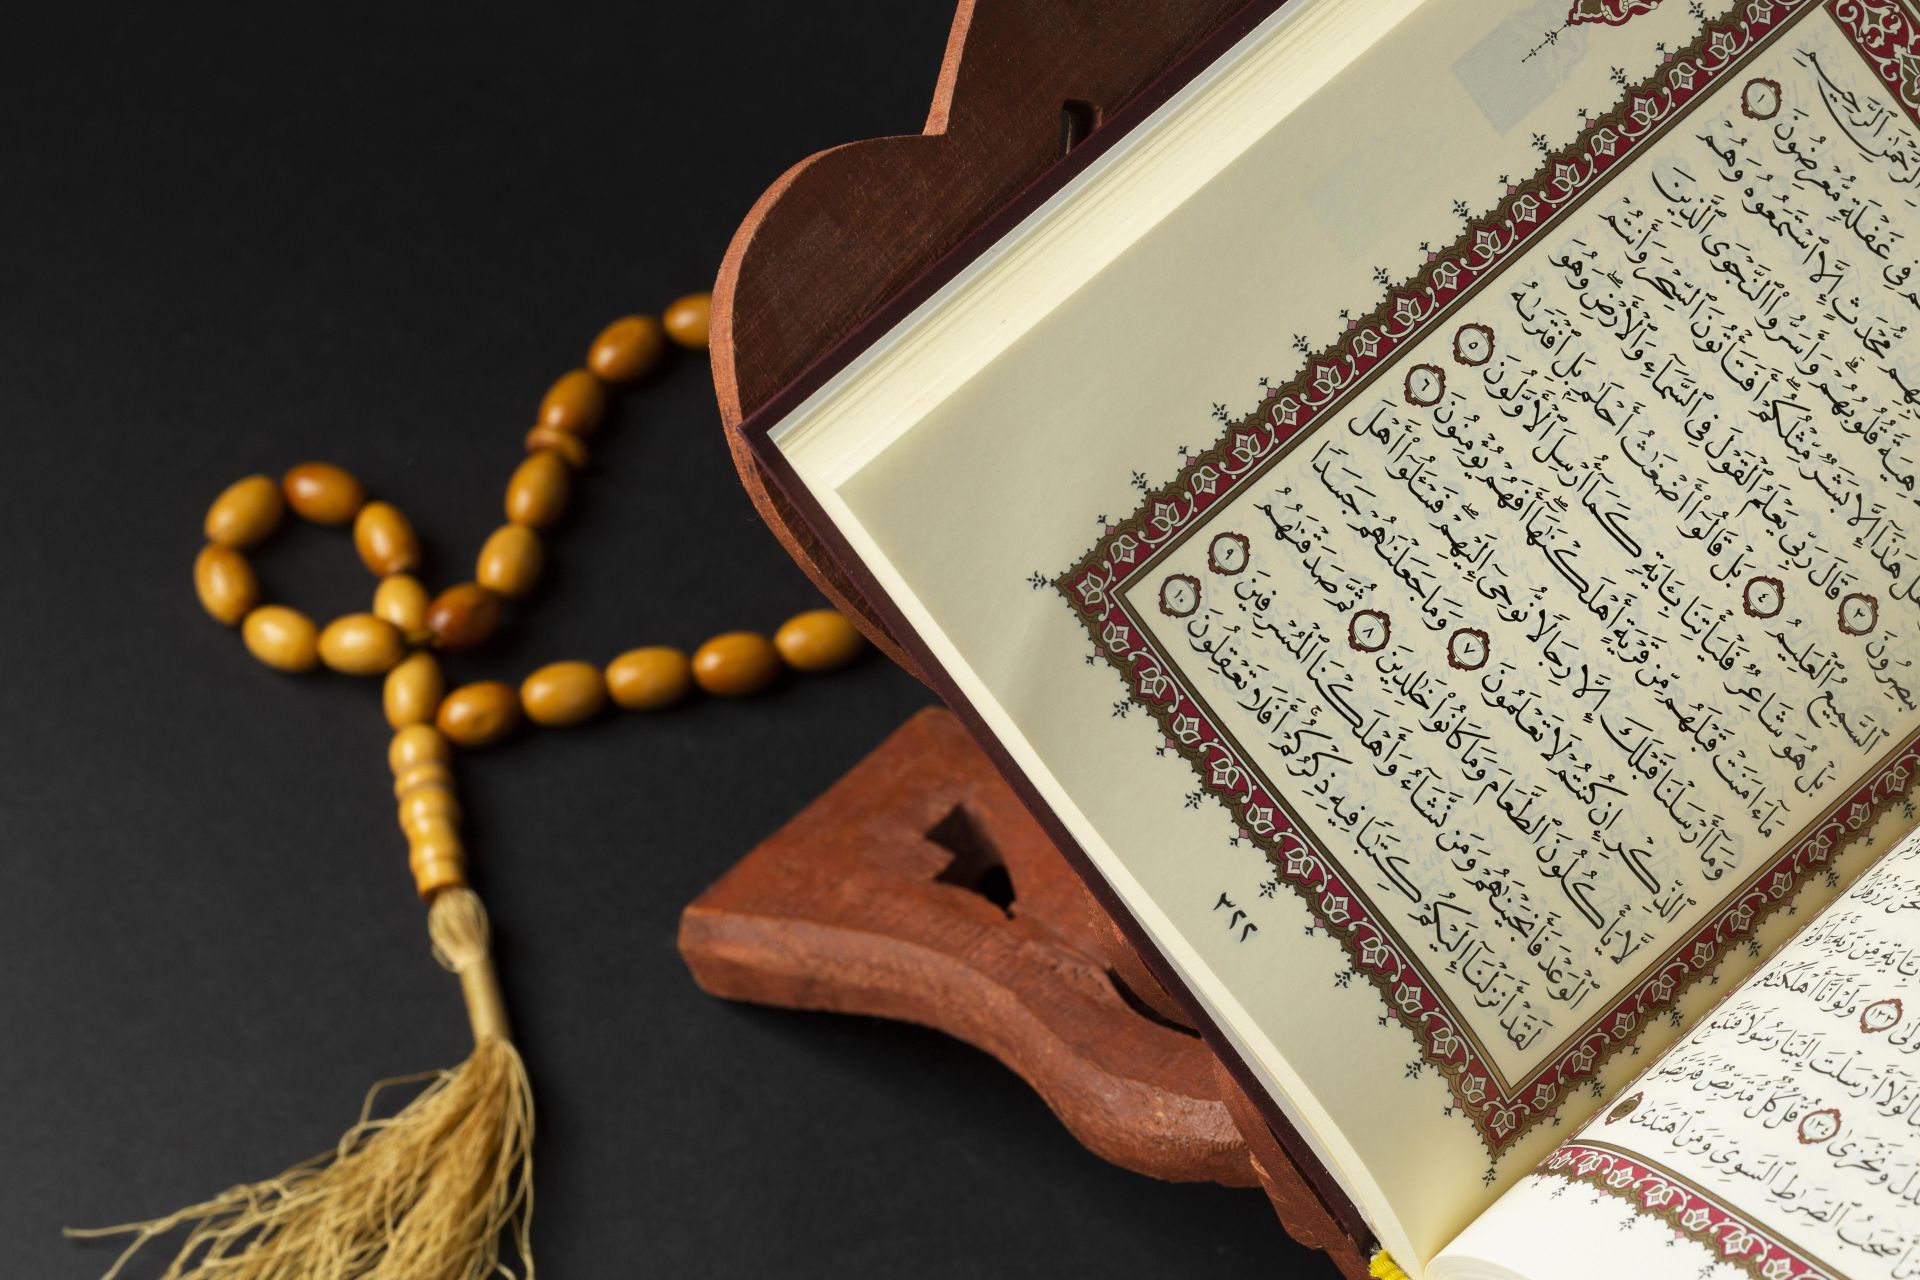 نَّحْنُ نَرْزُقُكَ
بِـَٔايَةٍ مِّن رَّبِّهِۦٓ أَوَلَمْ
ٱلْأُولَىٰ ١٣٣ وَلَوْ أَنَّآ أَهْلَكْنَٰهُم
لَوْلَآ أَرْسَلْتَ إِلَيْنَا رَسُولًا فَنَتَّبِعَ
نَّذِلَّ وَنَخْزَىٰ ١٣٤ قُلْ كُلٌّ مُّتَرَبِّصٌ فَتَرَبَّصُوا۟
أَصْحَٰبُ ٱلصِّرَٰطِ ٱلسَّوِيِّ وَمَنِ ٱهْتَدَىٰ
ٱلرَّحْمَٰنِ ٱلرَّحِيمِ
فِى غَفْلَةٍ مُّعْرِضُونَ ١
مُّحْدَثٍ إِلَّا ٱسْتَمَعُوهُ وَهُمْ
لَاهِيَةً قُلُوبُهُمْ ۗ وَأَسَرُّوا۟ ٱلنَّجْوَى ٱلَّذِينَ
هَلْ هَٰذَآ إِلَّا بَشَرٌ مِّثْلُكُمْ ۖ أَفَتَأْتُونَ ٱلسِّحْرَ وَأَنتُمْ
تُبْصِرُونَ ٣ قَالَ رَبِّى يَعْلَمُ ٱلْقَوْلَ فِى ٱلسَّمَآءِ وَٱلْأَرْضِ ۖ وَهُوَ
ٱلسَّمِيعُ ٱلْعَلِيمُ ٤ بَلْ قَالُوٓا۟ أَضْغَٰثُ أَحْلَٰمٍۭ بَلِ ٱفْتَرَىٰهُ
بَلْ هُوَ شَاعِرٌ فَلْيَأْتِنَا بِـَٔايَةٍ كَمَآ أُرْسِلَ ٱلْأَوَّلُونَ ٥
مَآ ءَامَنَتْ قَبْلَهُم مِّن قَرْيَةٍ أَهْلَكْنَٰهَآ ۖ أَفَهُمْ يُؤْمِنُونَ ٦
وَمَآ أَرْسَلْنَا قَبْلَكَ إِلَّا رِجَالًا نُّوحِىٓ إِلَيْهِمْ ۖ فَسْـَٔلُوٓا۟ أَهْلَ
ٱلذِّكْرِ إِن كُنتُمْ لَا تَعْلَمُونَ ٧ وَمَا جَعَلْنَٰهُمْ جَسَدًا
لَّا يَأْكُلُونَ ٱلطَّعَامَ وَمَا كَانُوا۟ خَٰلِدِينَ ٨ ثُمَّ صَدَقْنَٰهُمُ
ٱلْوَعْدَ فَأَنجَيْنَٰهُمْ وَمَن نَّشَآءُ وَأَهْلَكْنَا ٱلْمُسْرِفِينَ ٩
لَقَدْ أَنزَلْنَآ إِلَيْكُمْ كِتَٰبًا فِيهِ ذِكْرُكُمْ ۖ أَفَلَا تَعْقِلُونَ ١٠
٣٢٢